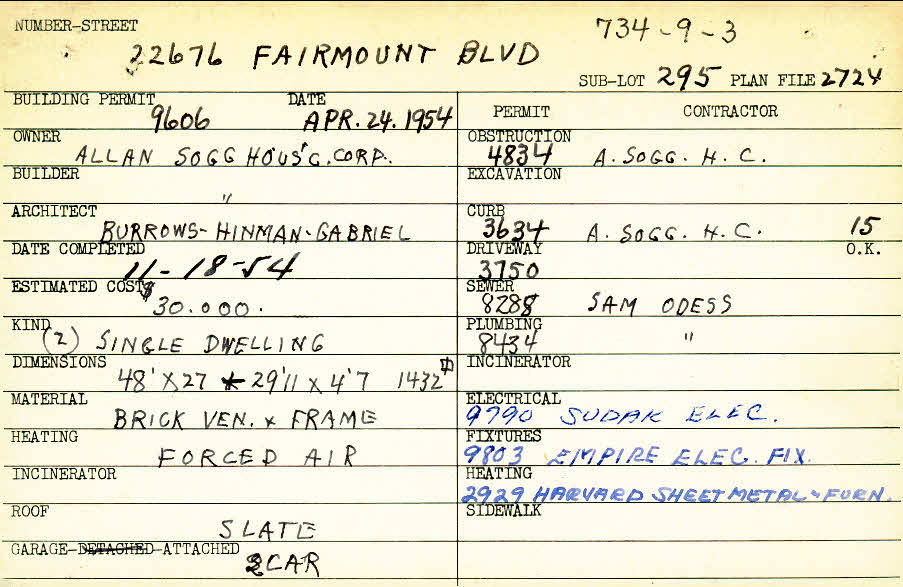 NUMBER-STREET 734-9-3
22676 FAIRMOUNT BLVD
SUB-LOT 295 PLAN FILE 2724
BUILDING PERMIT 9606 DATE APR. 24. 1954
OWNER ALLAN SOGG HOUS'G. CORP.
BUILDER "
ARCHITECT BURROWS-HINMAN-GABRIEL
DATE COMPLETED 11-18-54
ESTIMATED COST $30.000.
KIND (2) SINGLE DWELLING
DIMENSIONS 48' X 27 + 29'11 X 4'7 1432
MATERIAL BRICK VEN. & FRAME
HEATING FORCED AIR
INCINERATOR
ROOF SLATE
GARAGE-DETACHED-ATTACHED 2 CAR
PERMIT CONTRACTOR
OBSTRUCTION 4834 A. SOGG. H. C.
EXCAVATION
CURB 3634 A. SOGG. H. C. 15
DRIVEWAY 3750 O.K.
SEWER 8288 SAM ODESS
PLUMBING 8434 "
INCINERATOR
ELECTRICAL 9790 SUDAK ELEC.
FIXTURES 9803 EMPIRE ELEC. FIX.
HEATING 2929 HARVARD SHEET METAL & FURN.
SIDEWALK